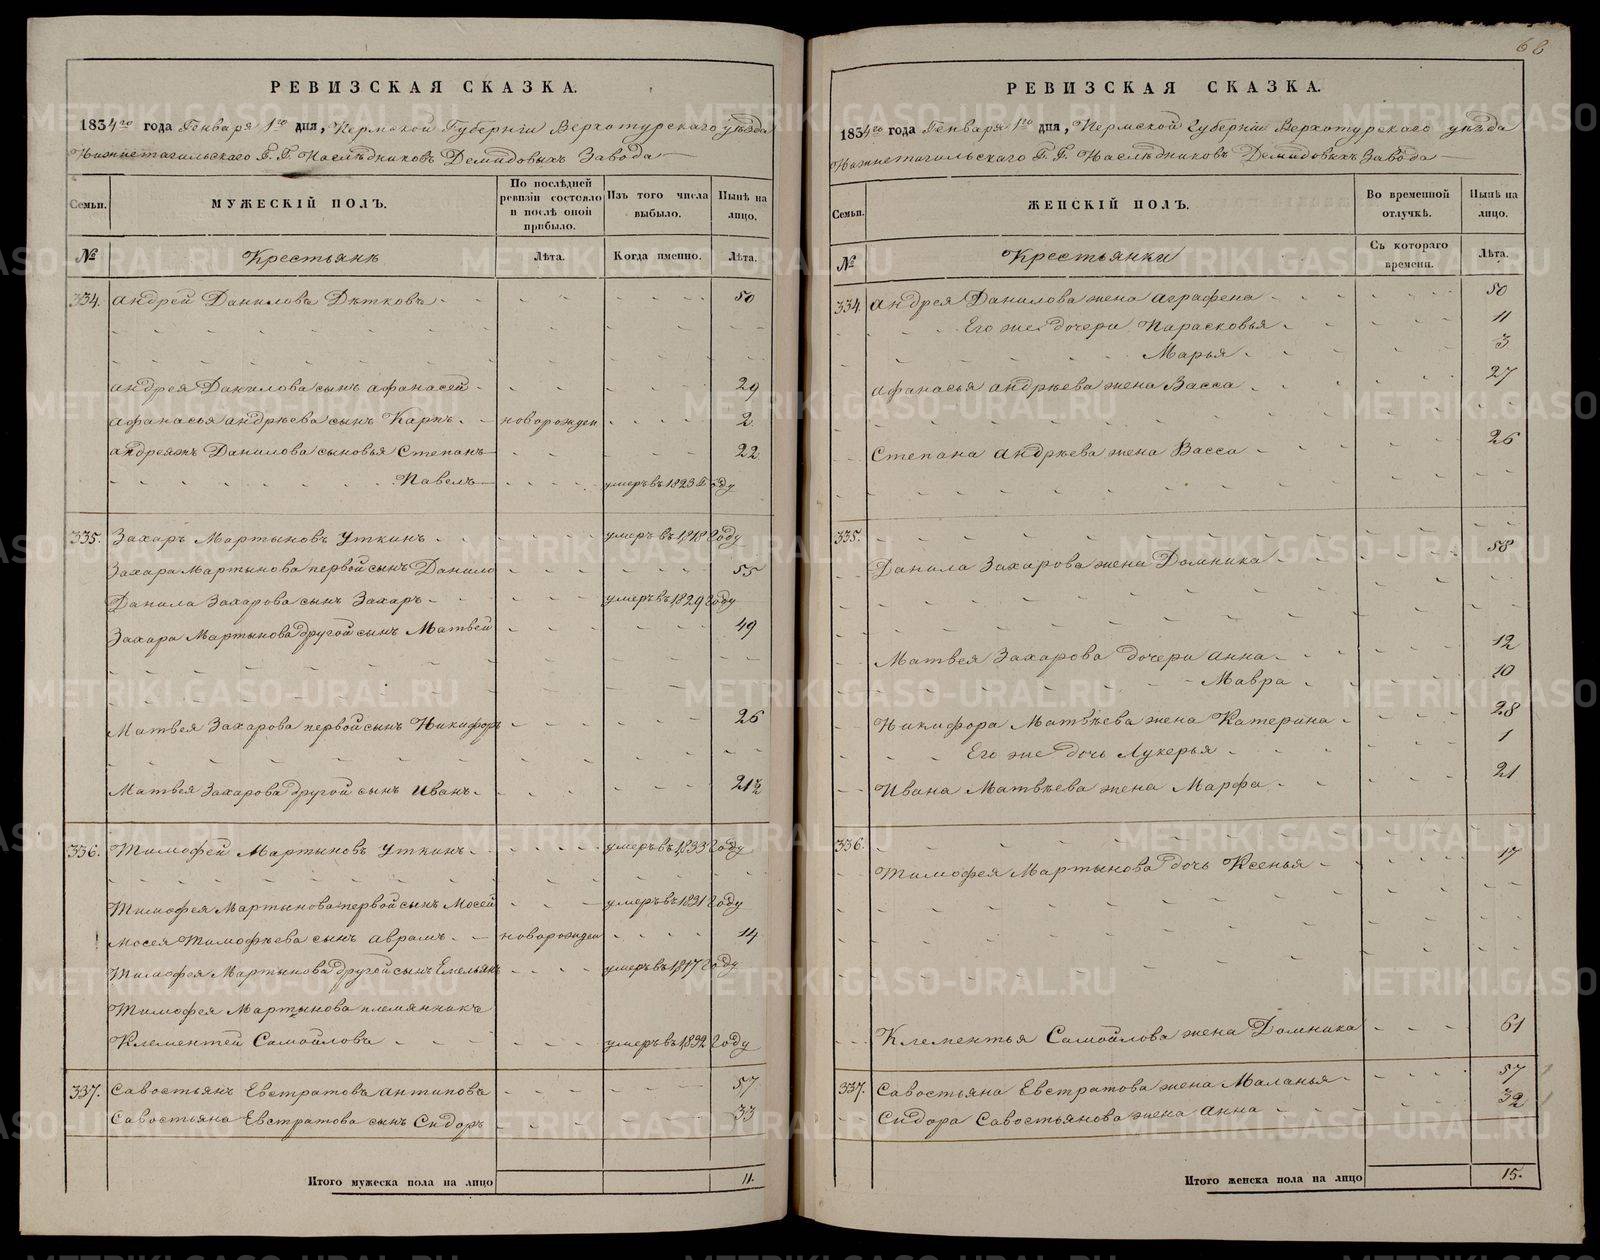 РЕВИЗСКАЯ СКАЗКА.
1834го года Генваря 1го дня, Пермской Губернiи Верхотурскаго уѣзда
Нижнетагильскаго Г. Г. Наслѣдниковъ Демидовыхъ Завода
Семьи.
МУЖЕСКIЙ ПОЛЪ.
По послѣдней ревизiи состояло и послѣ оной прибыло.
Изъ того числа выбыло.
Нынѣ на лицо.
№ Крестьянѣ Лѣта. Когда именно. Лѣта.
334. Андрей Данилова Дѣтковъ 50
Андрея Данилова сынъ Афанасей 29
Афанасья Андрѣева сынъ Карпъ новорожден 2
Андреяжъ Данилова сыновья Степанъ 22
Павелъ умеръ въ 1823 Году
335. Захаръ Мартыновъ Уткинъ умеръ въ 1818 Году
Захара Мартынова первой сынъ Данило 55
Данила Захарова сынъ Захаръ умеръ въ 1829 Году
Захара Мартынова другой сынъ Матвей 49
Матвея Захарова первой сынъ Никифоръ 26
Матвея Захарова другой сынъ Иванъ 21½
336. Тимофей Мартыновъ Уткинъ умеръ въ 1833 Году
Тимофея Мартынова первой сынъ Мосей умеръ въ 1831 Году
Мосея Тимофѣева сынъ Аврамъ новорожден 14
Тимофея Мартынова другой сынъ Емельянъ умеръ въ 1817 Году
Тимофея Мартынова племянникъ
Клементей Самойлова умеръ въ 1832 Году
337. Савостьянъ Евстратовъ Антиповъ 57
Савостьяна Евстратова сынъ Сидоръ 33
Итого мужеска пола на лицо 11.
68
РЕВИЗСКАЯ СКАЗКА.
1834го года Генваря 1го дня, Пермской Губернiи Верхотурскаго уѣзда
Нижнетагильскаго Г. Г. Наслѣдниковъ Демидовыхъ Завода
Семьи.
ЖЕНСКIЙ ПОЛЪ.
Во временной отлучкѣ.
Нынѣ на лицо.
№ Крестьянки Съ котораго времени. Лѣта.
334. Андрея Данилова жена Аграфена 50
Его же дочери Парасковья 11
Марья 3
Афанасья Андрѣева жена Васса 27
Степана Андрѣева жена Васса 26
335.
Данила Захарова жена Домника 58
Матвея Захарова дочери Анна 12
Мавра 10
Никифора Матвѣева жена Катерина 28
Его же дочь Лукерья 1
Ивана Матвѣева жена Марфа 21
336.
Тимофея Мартынова дочь Ксенья 17
Клементья Самойлова жена Домника 61
337. Савостьяна Евстратова жена Маланья 57
Сидора Савостьянова жена Анна 32
Итого женска пола на лицо 15.
METRIKI.GASO-URAL.RU